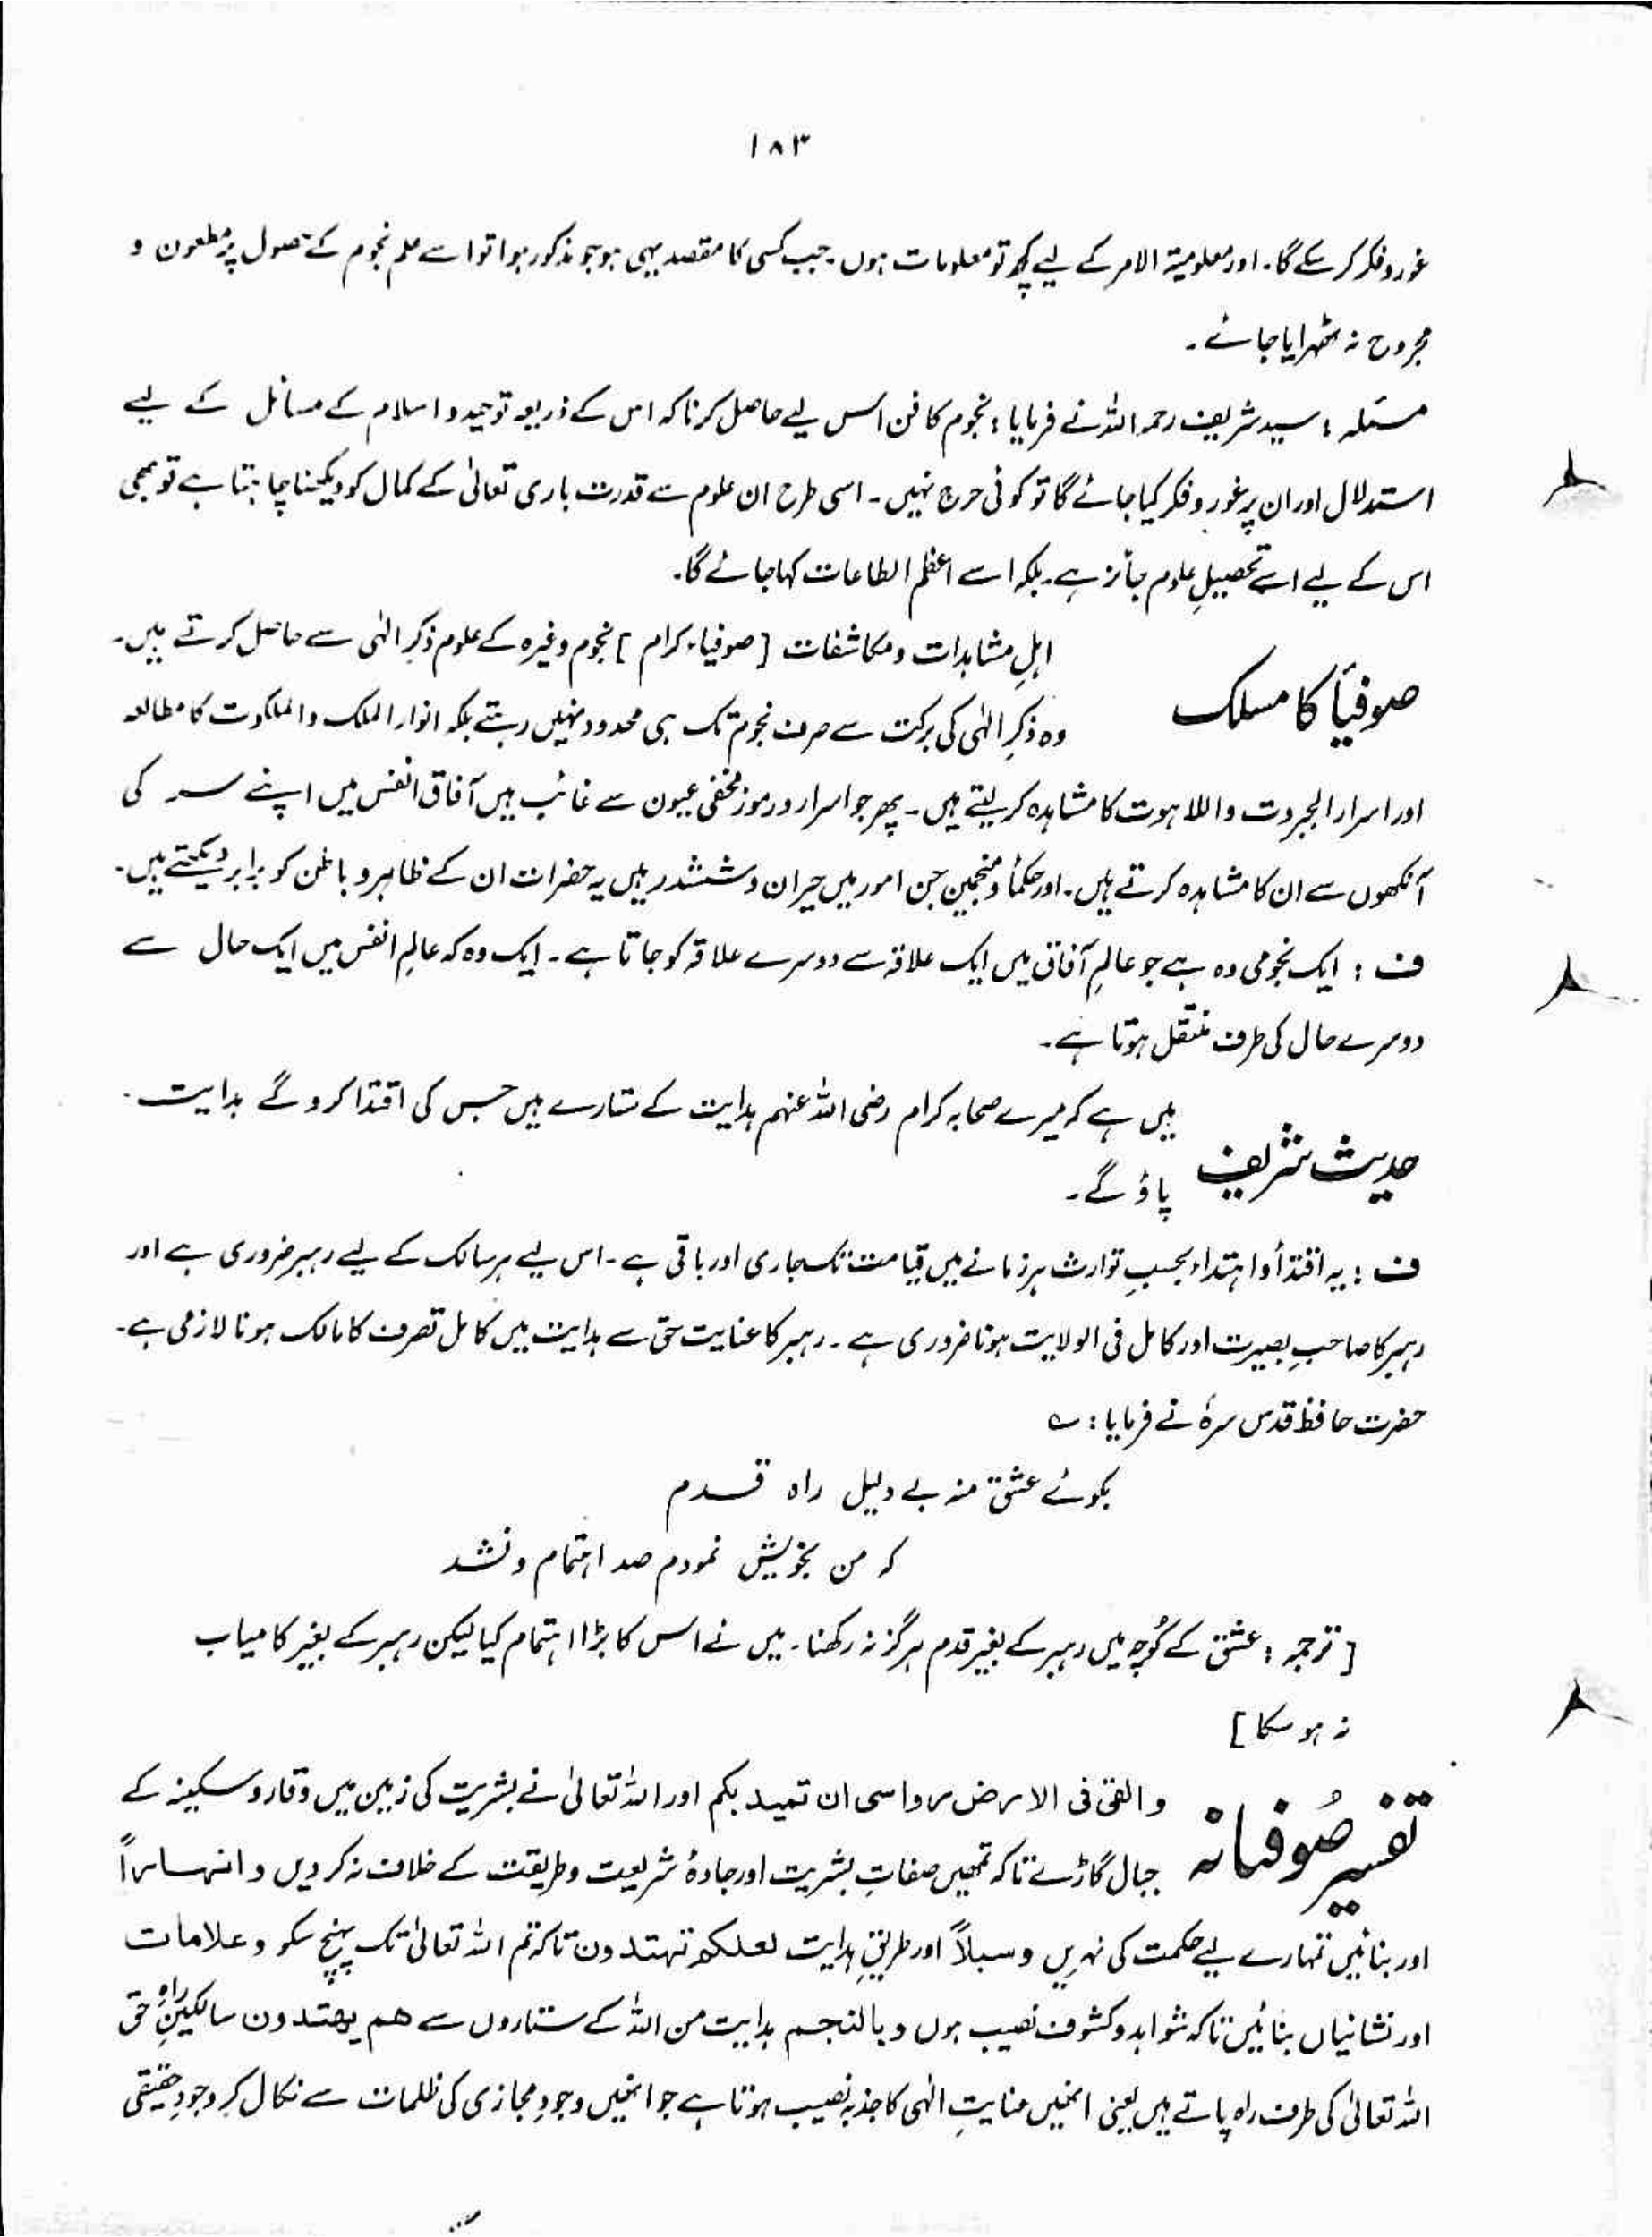 ۱۸۳
غور و فکر کر سکے گا۔ اور معلومیۃ الامر کے لیے کچھ تو معلومات ہوں۔ جب کسی کا مقصد یہی ہو جو مذکور ہوا تو اسے علم نجوم کے حصول پر مطعون و
مجروح نہ ٹھہرایا جائے۔
مسئلہ : سید شریف رحمہ اللہ نے فرمایا : نجوم کا فن اس لیے حاصل کرنا کہ اس کے ذریعہ توحید و اسلام کے مسائل کے لیے
استدلال اور ان پر غور و فکر کیا جائے گا تو کوئی حرج نہیں۔ اسی طرح ان علوم سے قدرت باری تعالیٰ کے کمال کو دیکھنا چاہتا ہے تو بھی
اس کے لیے اسے تحصیلِ علوم جائز ہے۔ بلکہ اسے اعظم الطاعات کہا جائے گا۔
صوفیأ کا مسلک
اہلِ مشاہدات و مکاشفات [صوفیاء کرام] نجوم وغیرہ کے علوم ذکرِ الٰہی سے حاصل کرتے ہیں۔
وہ ذکرِ الٰہی کی برکت سے صرف نجوم تک ہی محدود نہیں رہتے بلکہ انوار الملک والملکوت کا مطالعہ
اور اسرار الجبروت واللاہوت کا مشاہدہ کر لیتے ہیں۔ پھر جو اسرار و رموز مخفی عیون سے غائب ہیں آفاق انفس میں اپنے سر کی
آنکھوں سے ان کا مشاہدہ کرتے ہیں۔ اور حکمأ و منجمین جن امور میں حیران و ششدر ہیں یہ حضرات ان کے ظاہر و باطن کو برابر دیکھتے ہیں۔
ف : ایک نجومی وہ ہے جو عالمِ آفاق میں ایک علاقہ سے دوسرے علاقہ کو جاتا ہے۔ ایک وہ کہ عالمِ انفس میں ایک حال سے
دوسرے حال کی طرف منتقل ہوتا ہے۔
حدیث شریف
میں ہے کہ میرے صحابہ کرام رضی اللہ عنہم ہدایت کے ستارے ہیں جس کی اقتدا کرو گے ہدایت
پاؤ گے۔
ف : یہ اقتدأ و اہتداء بحسبِ توارث ہر زمانے میں قیامت تک جاری اور باقی ہے۔ اس لیے ہر سالک کے لیے رہبر ضروری ہے اور
رہبر کا صاحبِ بصیرت اور کامل فی الولایت ہونا ضروری ہے۔ رہبر کا عنایت حق سے ہدایت میں کامل تصرف کا مالک ہونا لازمی ہے۔
حضرت حافظ قدس سرہٗ نے فرمایا : ؎
بکوئے عشق منہ بے دلیل راہ قدم
کہ من بخویش نمودم صد اہتمام و نشد
[ترجمہ : عشق کے کُوچہ میں رہبر کے بغیر قدم ہرگز نہ رکھنا۔ میں نے اس کا بڑا اہتمام کیا لیکن رہبر کے بغیر کامیاب
نہ ہو سکا]
تفسیر صُوفیانہ
والقیٰ فی الارض رواسی ان تمید بکم اور اللہ تعالیٰ نے بشریت کی زمین میں وقار و سکینہ کے
جبال گاڑے تاکہ تمھیں صفاتِ بشریت اور جادۂ شریعت و طریقت کے خلاف نہ کر دیں و انہاراً
اور بنائیں تمہارے لیے حکمت کی نہریں وسبلاً اور طریقِ ہدایت لعلکم تہتدون تاکہ تم اللہ تعالیٰ تک پہنچ سکو وعلامات
اور نشانیاں بنائیں تاکہ شواہد و کشوف نصیب ہوں وبالنجم ہدایت من اللہ کے ستاروں سے ھم یھتدون سالکینِ راہِ حق
اللہ تعالیٰ کی طرف راہ پاتے ہیں یعنی انھیں عنایتِ الٰہی کا جذبہ نصیب ہوتا ہے جو انھیں وجودِ مجازی کی ظلمات سے نکال کر وجودِ حقیقی